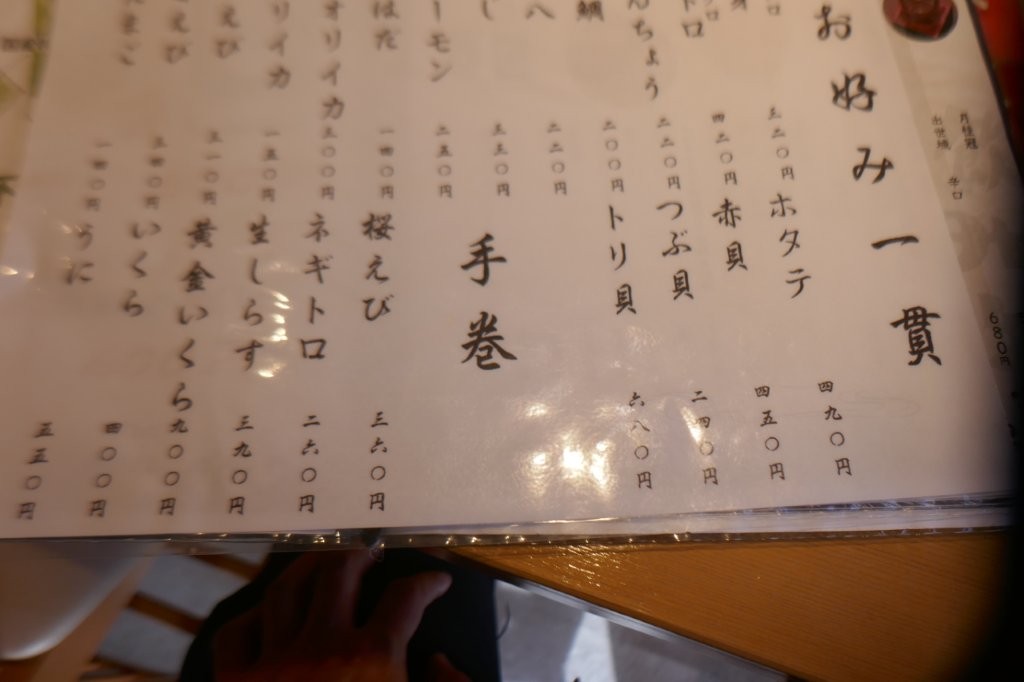 月桂冠
出世城 辛口
680円
お好み一貫
三二〇円
四二〇円
んちょう 二二〇円
二〇〇円
鯛
八 二二〇円
じ
ーモン 二五〇円
はだ 一四〇円
オリイカ 三〇〇円
リイカ 一五〇円
えび 三一〇円
えび
たまご 一四〇円
ホタテ 四九〇円
赤貝 四五〇円
つぶ貝 二四〇円
トリ貝 六八〇円
手巻
桜えび 三六〇円
ネギトロ 二六〇円
生しらす 三九〇円
黄金いくら 九〇〇円
いくら 四〇〇円
うに 五五〇円